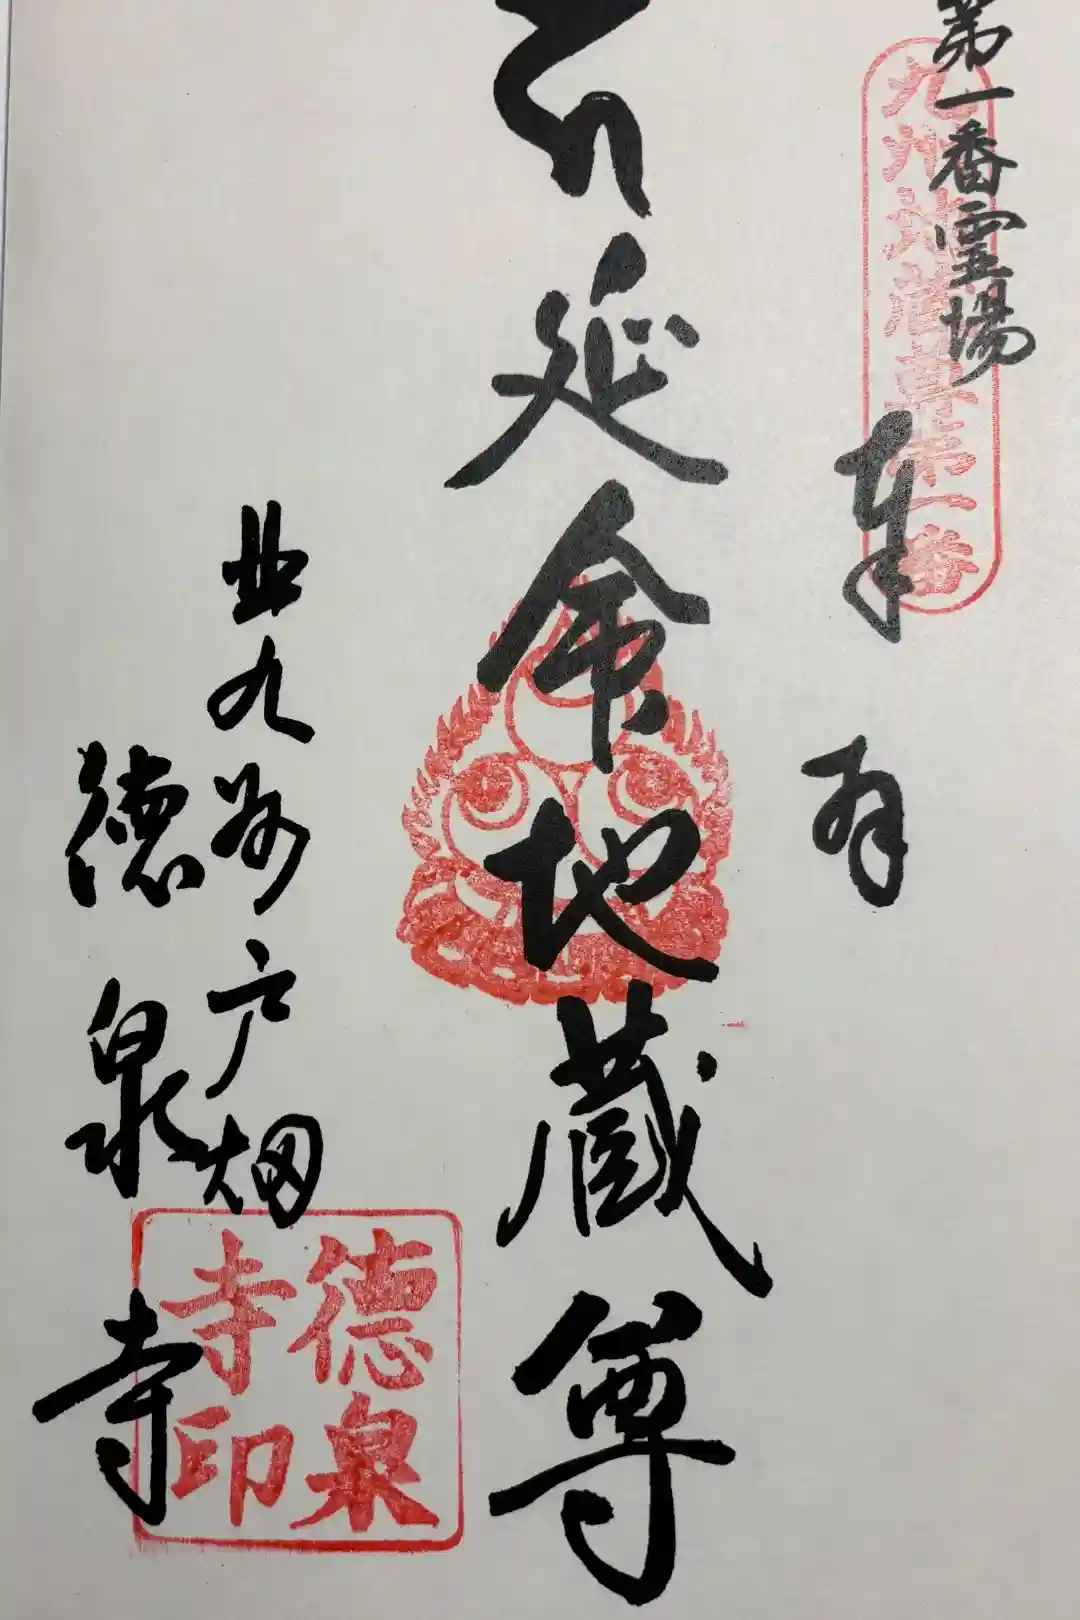 第一番霊場
九州地蔵尊第一番
奉
拝
延命地蔵尊
北九州戸畑
徳泉寺
徳泉
寺印